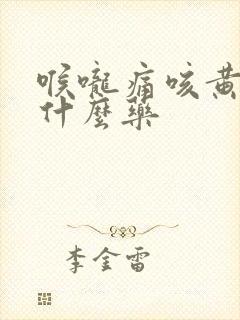 喉嚨痛咳黃
什麼藥
李金雷